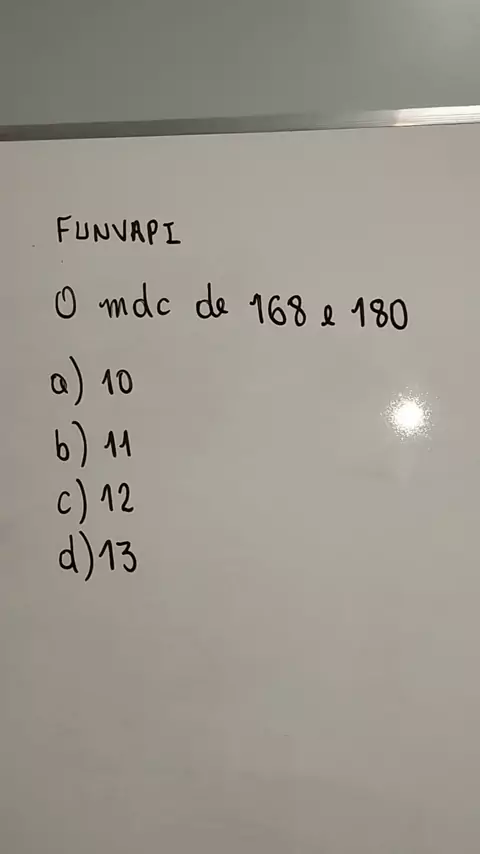 FUNVAPI
O mdc de 168 e 180
a) 10
b) 11
c) 12
d) 13